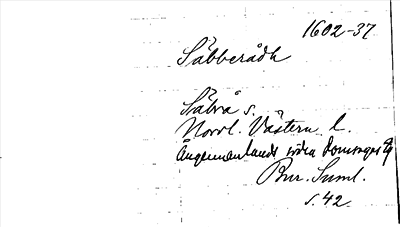 1602-37
Säbberådh
Säbrå s.
Norrl. Västern. l.
Ångermanlands södra domsaga
Bur. Suml.
s. 42